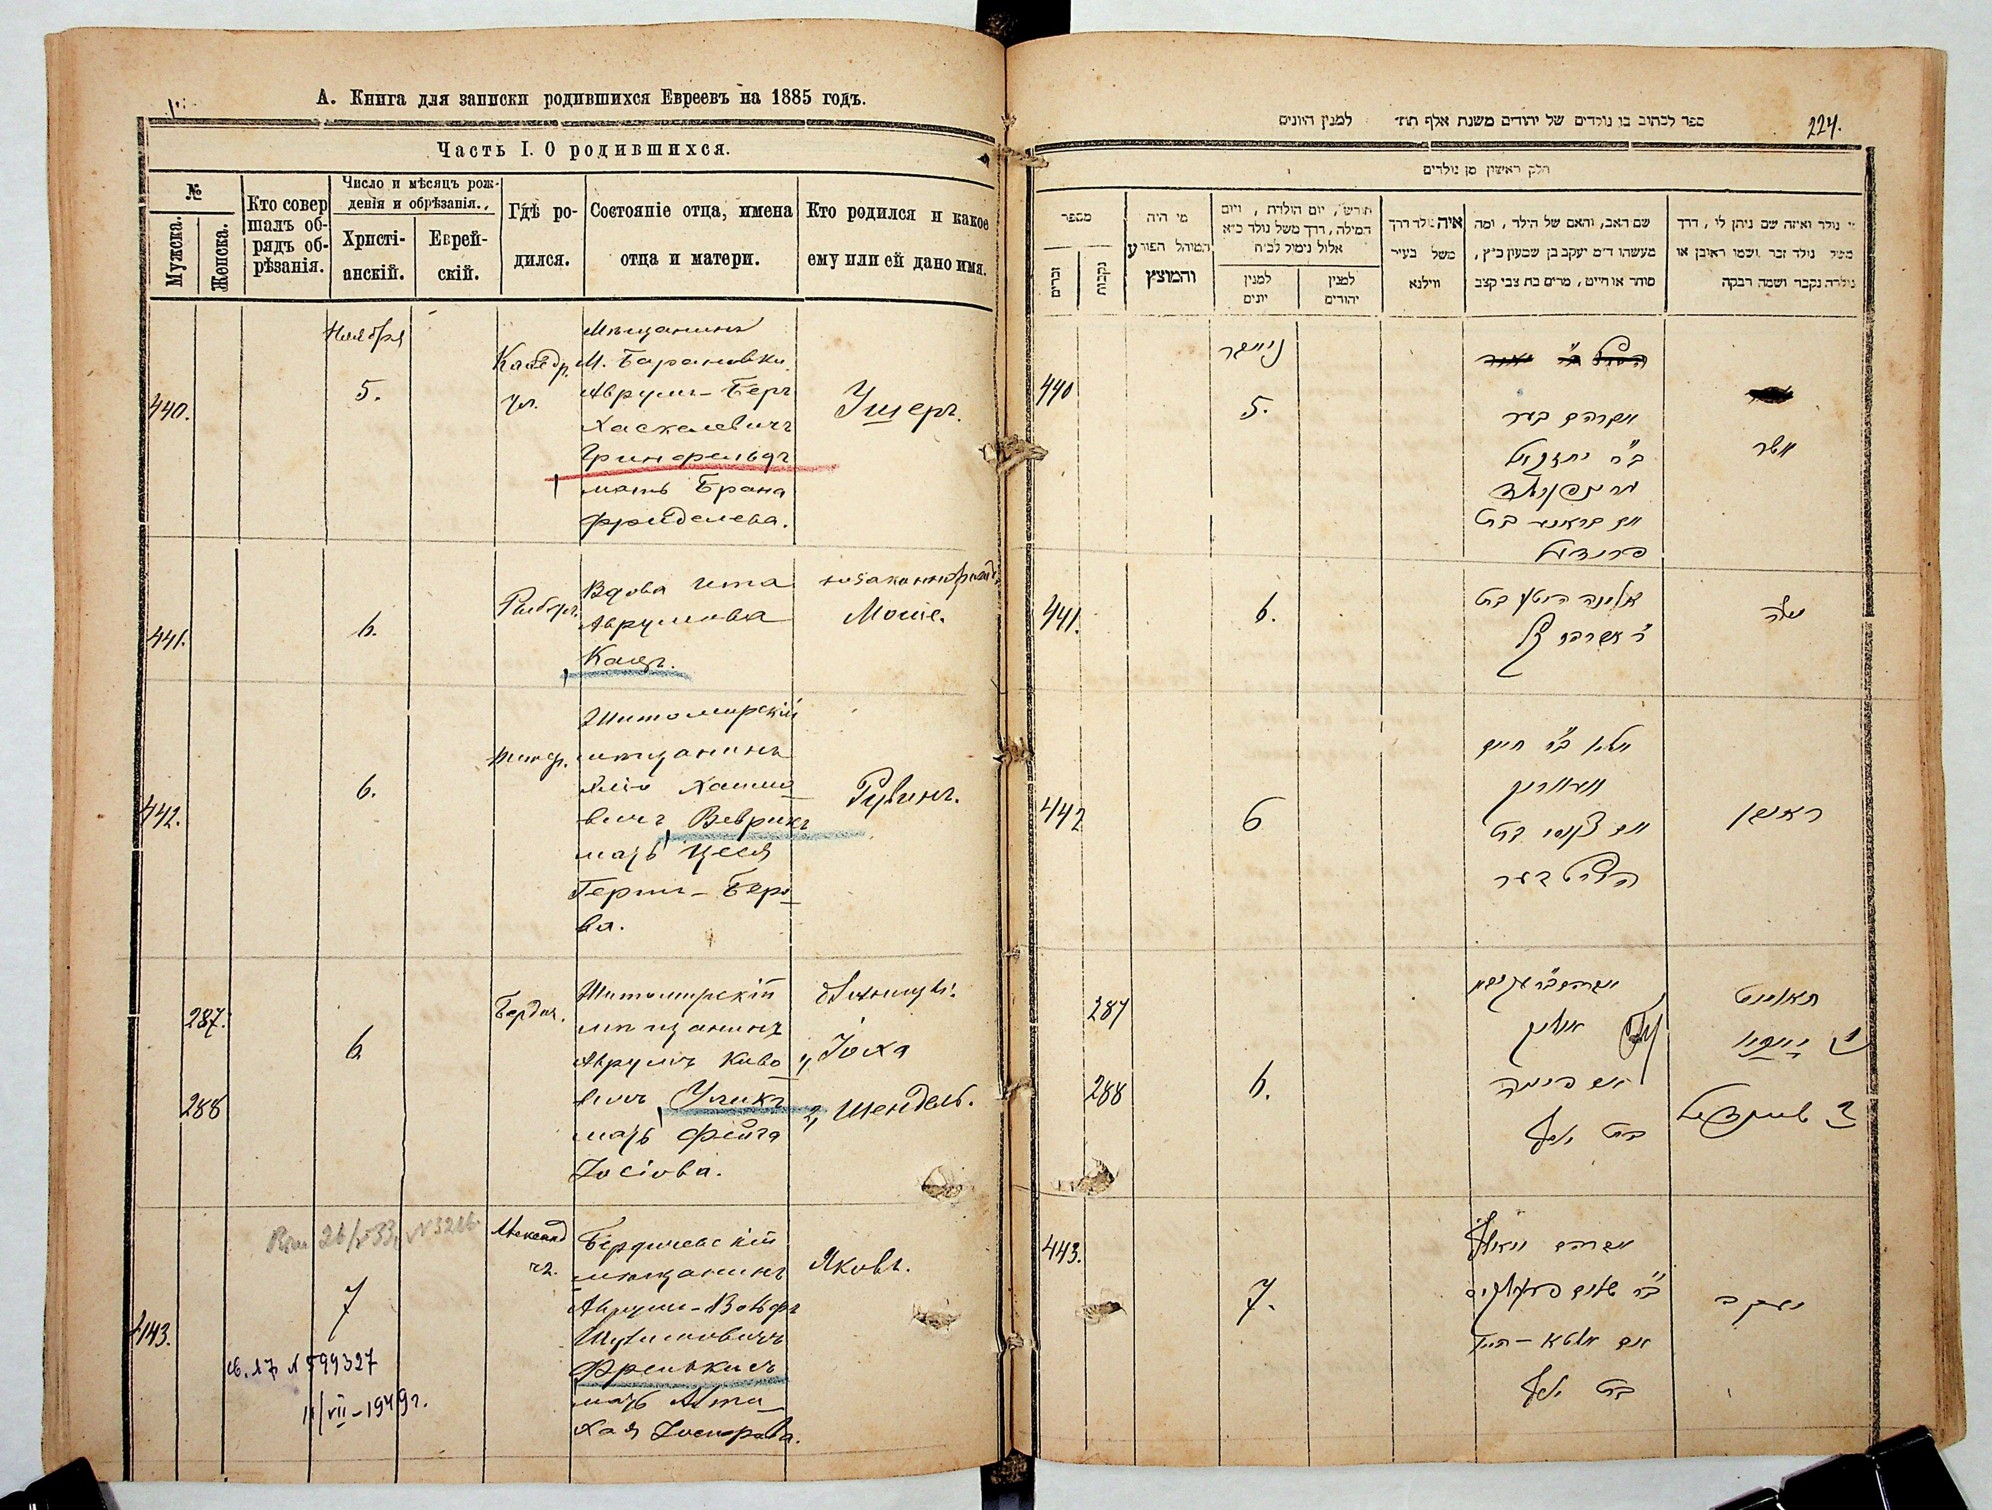 А. Книга для записки родившихся Евреевъ на 1885 годъ.
Часть I. О родившихся.
№
Мужска.
Женска.
Кто совер
шалъ об-
рядъ об-
рѣзанія.
Число и мѣсяцъ рож-
денія и обрѣзанія.
Христі-
анскій.
Еврей-
скій.
Гдѣ ро-
дился.
Состояніе отца, имена
отца и матери.
Кто родился и какое
ему или ей дано имя.
440.
Ноября
5.
Кафедр.
ул.
Мѣщанинъ
М. Барановки
Аврумъ-Беръ
Хаскелевичъ
Гринфельдъ
мать Брана
Фрейделева.
Ушеръ.
441.
6.
Вдова Ита
Аврумова
Кацъ.
Моше.
442.
6.
Житомирскій
мѣщанинъ
Хаимо
вичъ Веврикъ
мать Цеся
Герш-Беро
ва.
Рувинъ.
287.
288
6
Бердич.
Житомирскій
мѣщанинъ
Аврумъ Киво
вичъ Уликъ
мать Фейга
Іосіова.
близнецы:
1, Іоха
2, Шендель.
443.
7
Бердичевскій
мѣщанинъ
Аврумъ-Вольфъ
Шулимовичъ
Френкисъ
мать Алта
Хая
Яковъ.
св. 17 № 599327
11/VII-1949г.
ספר לכתוב בו נולדים של יהודים משנת אלף תת״ למנין היונים
224.
חלק ראשון מן נולדים
מספר
זכרים
נקבות
מי היה
המוהל הפורע
והמוצץ
חודש, יום הולדת, ויום
המילה, דרך משל נולד כ״א
אלול נימול לכ״ח
למנין
יונים
למנין
יהודים
איה נולד דרך
משל בעיר
ווילנא
שם האב, והאם של הילד, ומה
מעשהו ד״מ יעקב בן שמעון כ״ץ,
סוחר או חייט, מרים בת צבי קצב
מי נולד ואיזה שם ניתן לו, דרך
משל נולד זכר ושמו ראובן או
נולדה נקבה ושמה רבקה
440
5.
אברהם בער
ב״ר יחזקאל
גרינפעלד
ואם בראנע בת
פריידעל
אשר
441.
6.
אלמנה היטע בת
משה
442
6
אלי׳ ב״ר חיים
וועווריק
ואם צעסי בת
הערש בער
ראובן
287
288
6.
אוליק
בת יוסף
תאומות
1 יוכא
2 שיינדעל
443.
7.
אברהם וואלף
ב״ר שלום פרענקיס
אם אלטא-חיי׳
בת יוסף
יעקב